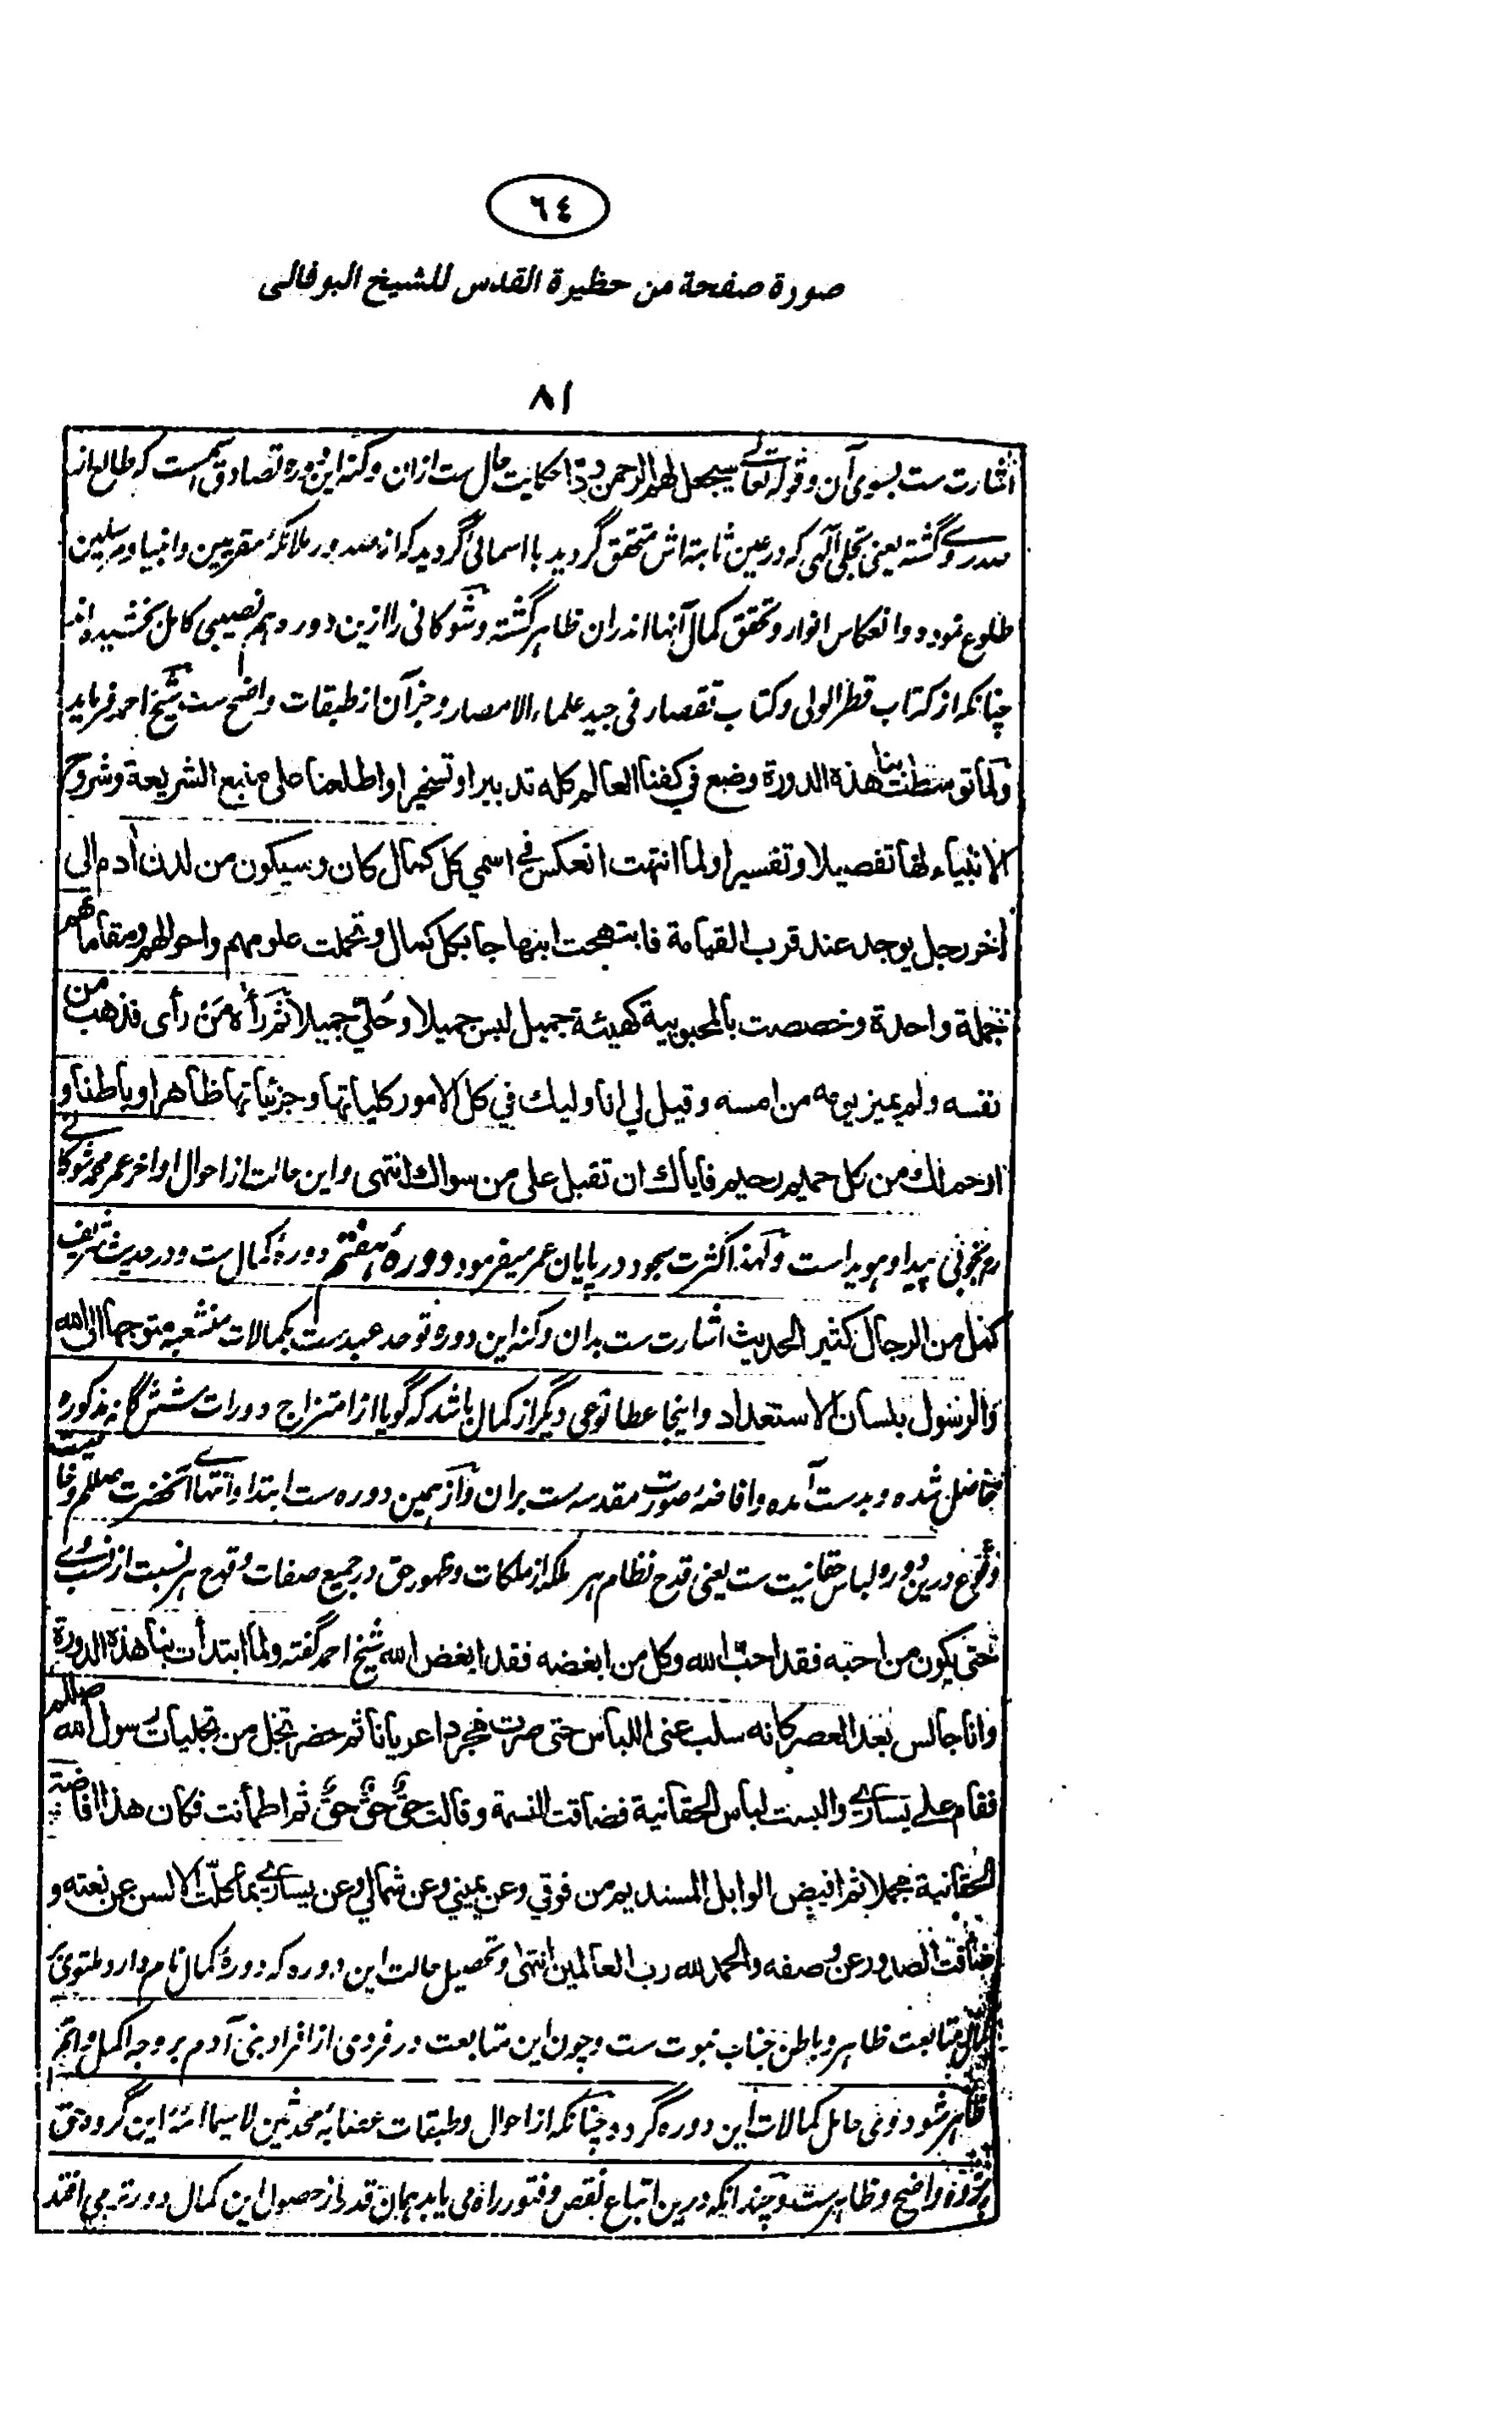 ٦٤
صورة صفحة من حظيرة القدس للشيخ البوفالى
٨١
اشارت ست بسوی آن وقوله تعالے سيجعل لهم الرحمن ودّا حکایت حال ست ازان وکنه این دوره تصادق اسمیست که طالع از
صدرے گشته یعنی تجلی آلهی که در عین ثابته اش متحقق گردید با اسمائی گردید که از صدور ملائکهٔ مقربین وانبیا ومرسلین
طلوع نموده وانعکاس انوار وتحقق کمال آنها اندران ظاهر گشته وشوکانی را ازین دوره هم نصیبی کامل بخشیده اند
چنانکه از کتاب قطر الولی وکتاب تقصار فی جید علماء الامصار وجز آن از طبقات واضح ست شیخ احمد فرماید
ولما توسطت بنا هذه الدورة وضع في كفنا العالم كله تدبيرا وتسخيرا واطلعنا على منبع الشريعة وشروح
الانبياء لها تفصيلا وتفسيرا ولما انتهت انعكس في اسمي كل كمال كان وسيكون من لدن أدم الى
أخر رجل يوجد عند قرب القيامة فابتهجت ابتهاجا بكل كمال وتحملت علومهم واحوالهم ومقاماتهم
جملة واحدة وخصصت بالمحبوبية كهيئة جميل لبس جميلا وحُلّي جميلا ثم رأه مَن رأى فذهب من
نفسه ولم يميز يومه من امسه وقيل لي انا وليك في كل الامور كلياتها وجزئياتها ظاهرا وباطنا و
ارحم لك من كل حميم رحيم فاياك ان تقبل على من سواك انتهى واین حالت از احوال اواخر عمر محمد شوکانے
رح بخوبی پیدا وهویداست ولهذا کثرت سجود در پایان عمر میفرمود دورهٔ هفتم دورهٔ کمال ست ودر حدیث شریف
كمل من الرجال كثير الحديث اشارت ست بدان وکنه این دوره توحد عبدست بکمالات منشعبه متوجها الى الله
والرسول بلسان الاستعداد واینجا عطا نوعی دیگر از کمال باشد که گویا از امتزاج دورات شش گانه مذکوره
حاصل شده وبدست آمده وافاضهٔ صورت مقدسه ست بران واز همین دوره ست ابتدا وانتهاے آنحضرت صللم وخاصیت
وقوع درین دوره لباس حقانیت ست یعنی قدح نظام هر ملکه از ملکات وظهور حق در جمیع صفات وقدح هر نسبت از نسب وے
حتى يكون من احبه فقد احبّ الله وكل من ابغضه فقد ابغض الله شیخ احمد گفته ولما ابتدأت بنا هذه الدورة
وانا جالس بعد العصر كانه سلب عنى اللباس حتى صرت مجردا عريانا ثم حضر تجل من تجليات رسول الله صللم
فقام على يساري والبست لباس الحقانية فضاقت النسمة وقالت حقٌّ حقٌّ حقٌّ ثم اطمأنت فكان هذا افاضة
الحقانية مجملا ثم افيض الوابل المستديم من فوقي وعن يميني وعن شمالي وعن يساري بما كلّت الالسن عن نعته و
ضاقت الصدور عن وصفه والحمد لله رب العالمين انتهى وتحصیل حالت این دوره که دورهٔ کمال نام دارد منوط
کمال متابعت ظاهر وباطن جناب نبوت ست وچون این متابعت در فردی از افراد بنی آدم بر وجه اکمل واتم
ظاهر شود وی حامل کمالات این دوره گردد چنانکه از احوال وطبقات عصابهٔ محدثین لاسیما ائمهٔ این گروه حق
پژوه واضح وظاهر ست وچندانکه درین اتباع نقص وفتور راه می یابد همان قدر از حصول این کمال دور تر می افتد